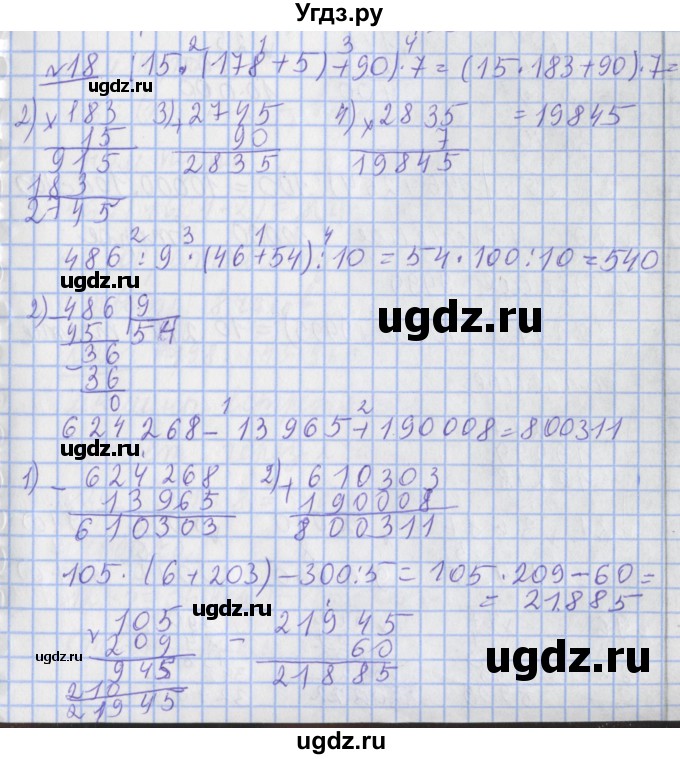 Угдз.ру
№18 (15·(178+5)+90)·7=(15·183+90)·7=
2 1 3 4
=19845
2) ×183
15
915
183
2745
3) +2745
90
2835
4) ×2835
7
19845
ugdz.ru
486:9·(46+54):10=54·100:10=540
2 3 1 4
ugdz.ru
2) -486 9
45 54
-36
36
0
ugdz.ru
624268-13965+190008=800311
1 2
ugdz.ru
1) -624268
13965
610303
2) +610303
190008
800311
ugdz.ru
105·(6+203)-300:5=105·209-60=
=21885
×105
209
945
210
21945
-21945
60
21885
ugdz.ru
ugdz.ru
ugdz.ru
ugdz.ru